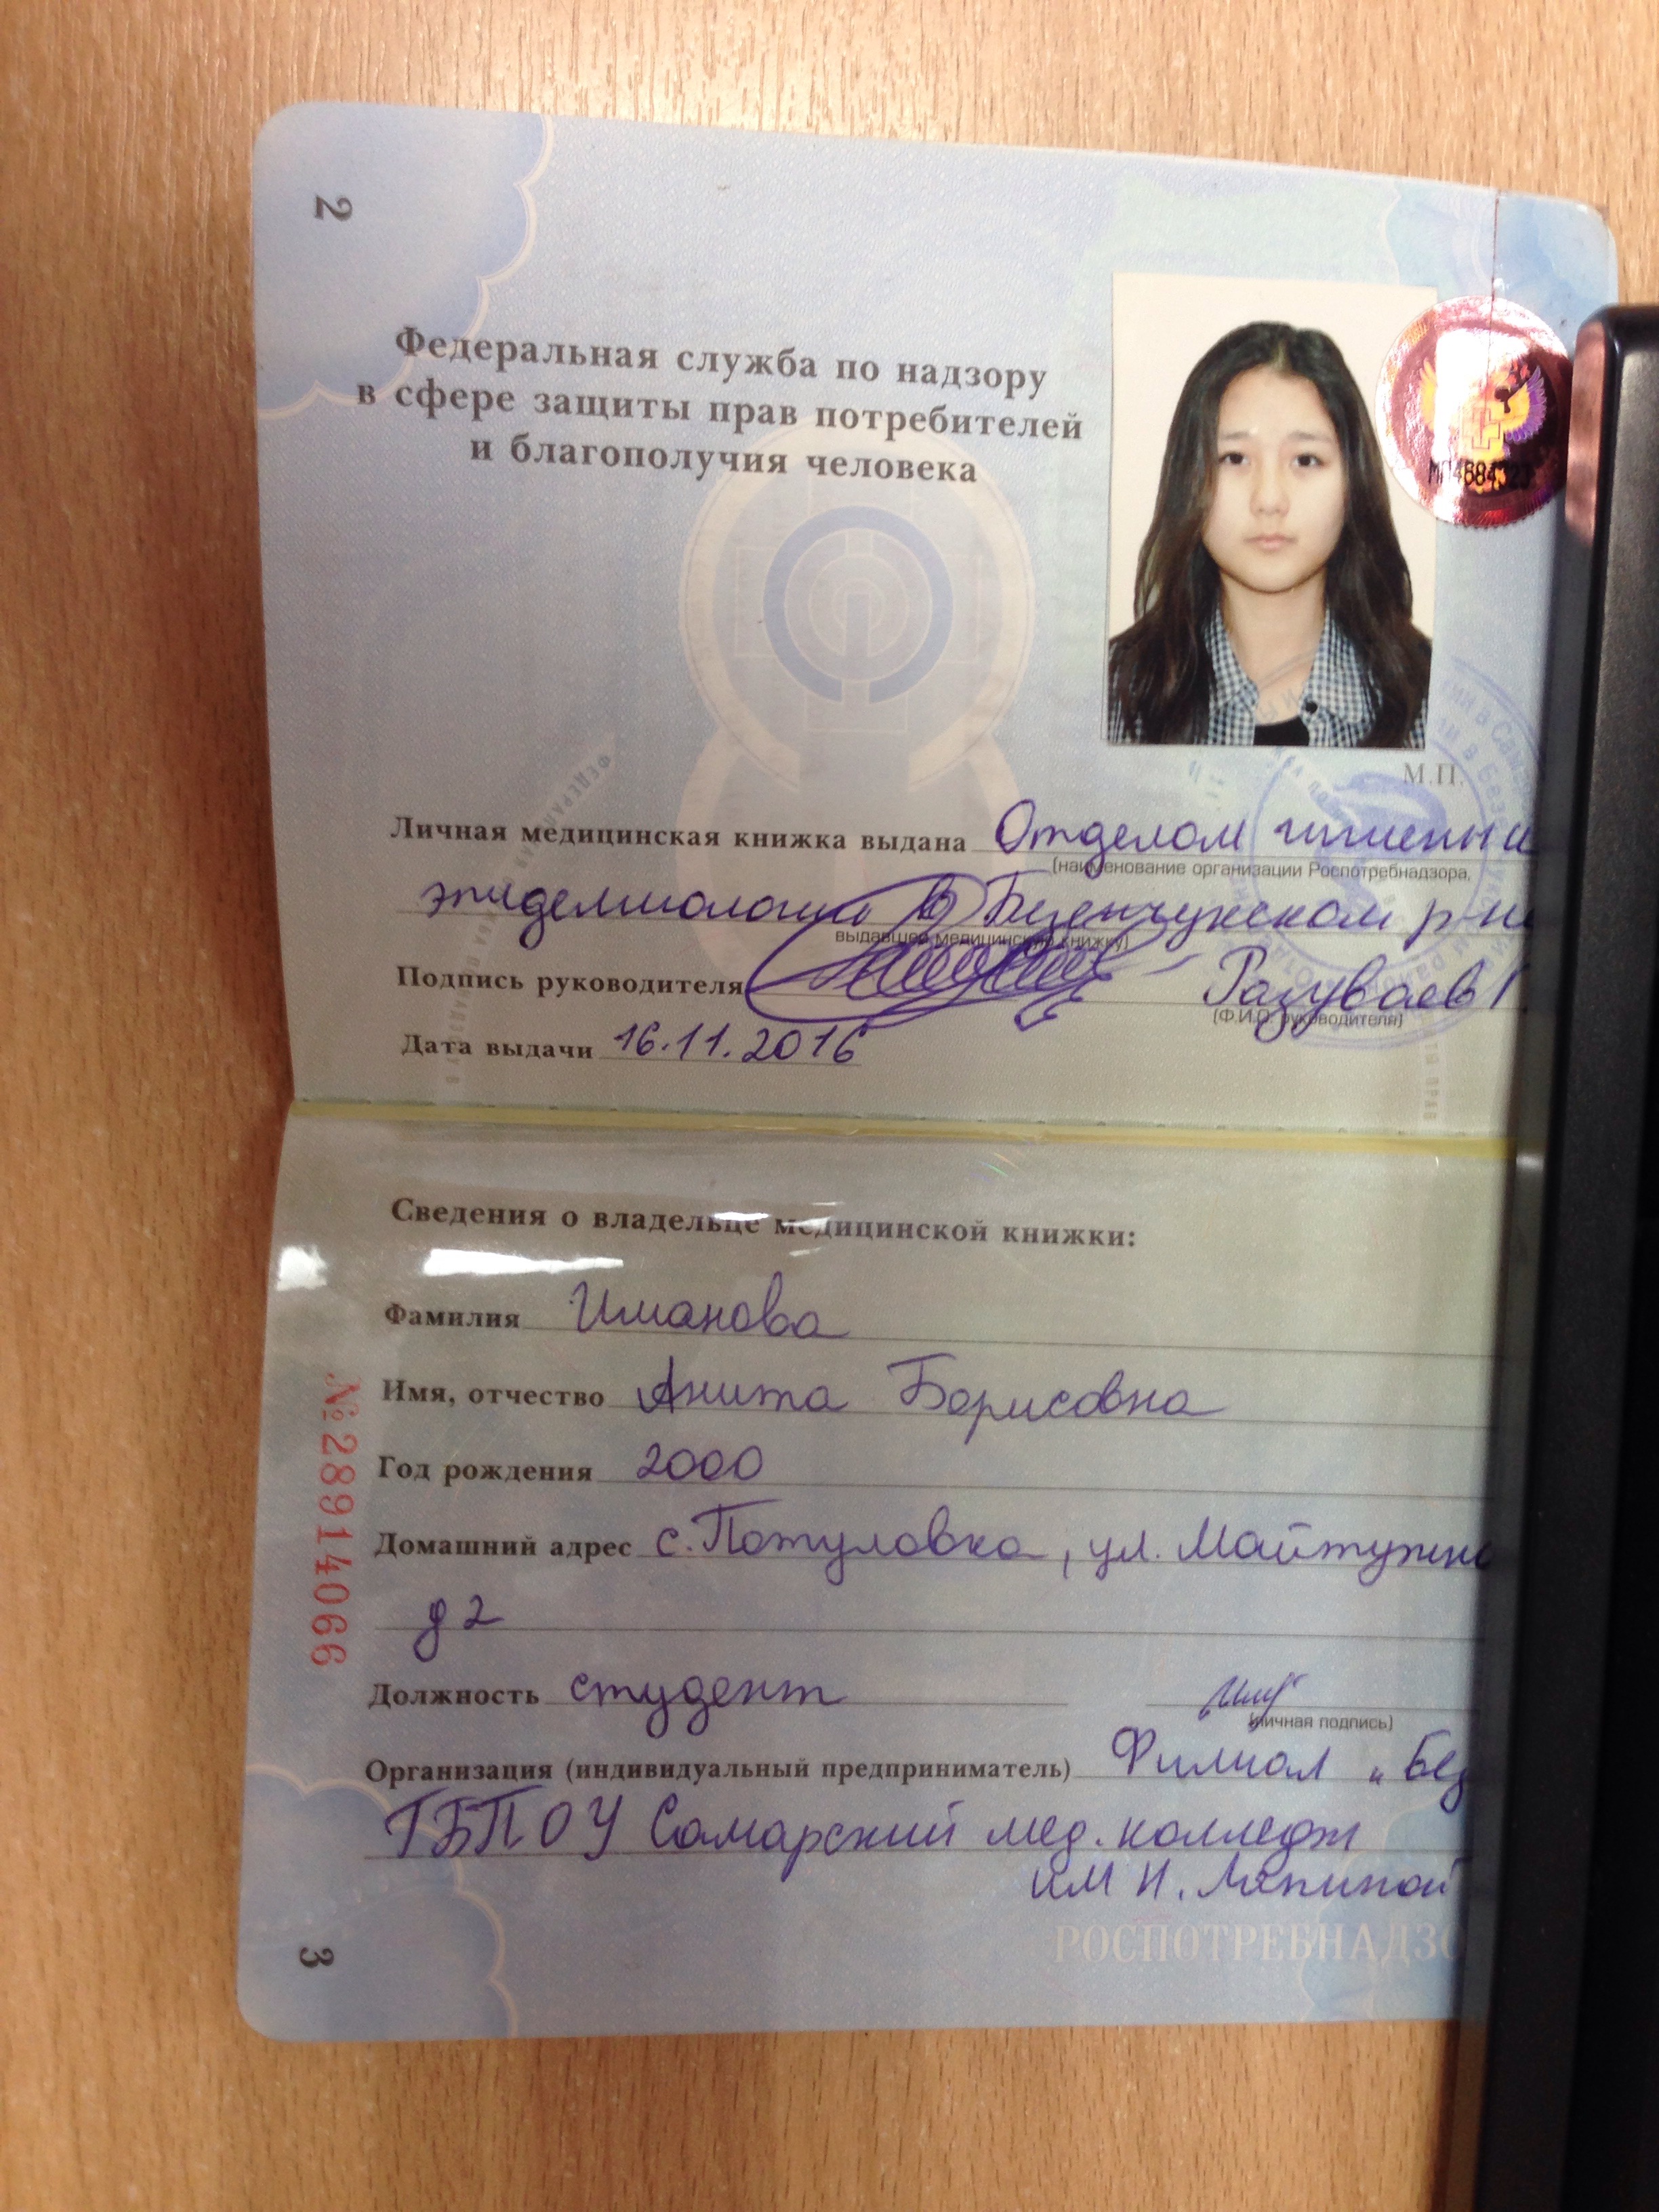 2
Федеральная служба по надзору
в сфере защиты прав потребителей
и благополучия человека
МП4884323
М.П.
Личная медицинская книжка выдана Отделом гигиены и
(наименование организации Роспотребнадзора,
эпидемиологии в Безенчукском р-не
выдавшей медицинскую книжку)
Подпись руководителя Разуваев
(Ф.И.О. руководителя)
Дата выдачи 16.11.2016
Сведения о владельце медицинской книжки:
Фамилия Иманова
Имя, отчество Анита Борисовна
Год рождения 2000
Домашний адрес с. Потуловка, ул.
д 2
Должность студент
(личная подпись)
Организация (индивидуальный предприниматель) Филиал "Без
ГБПОУ Самарский мед. колледж
им Н. Ляпиной
№28914066
3
РОСПОТРЕБНАДЗО